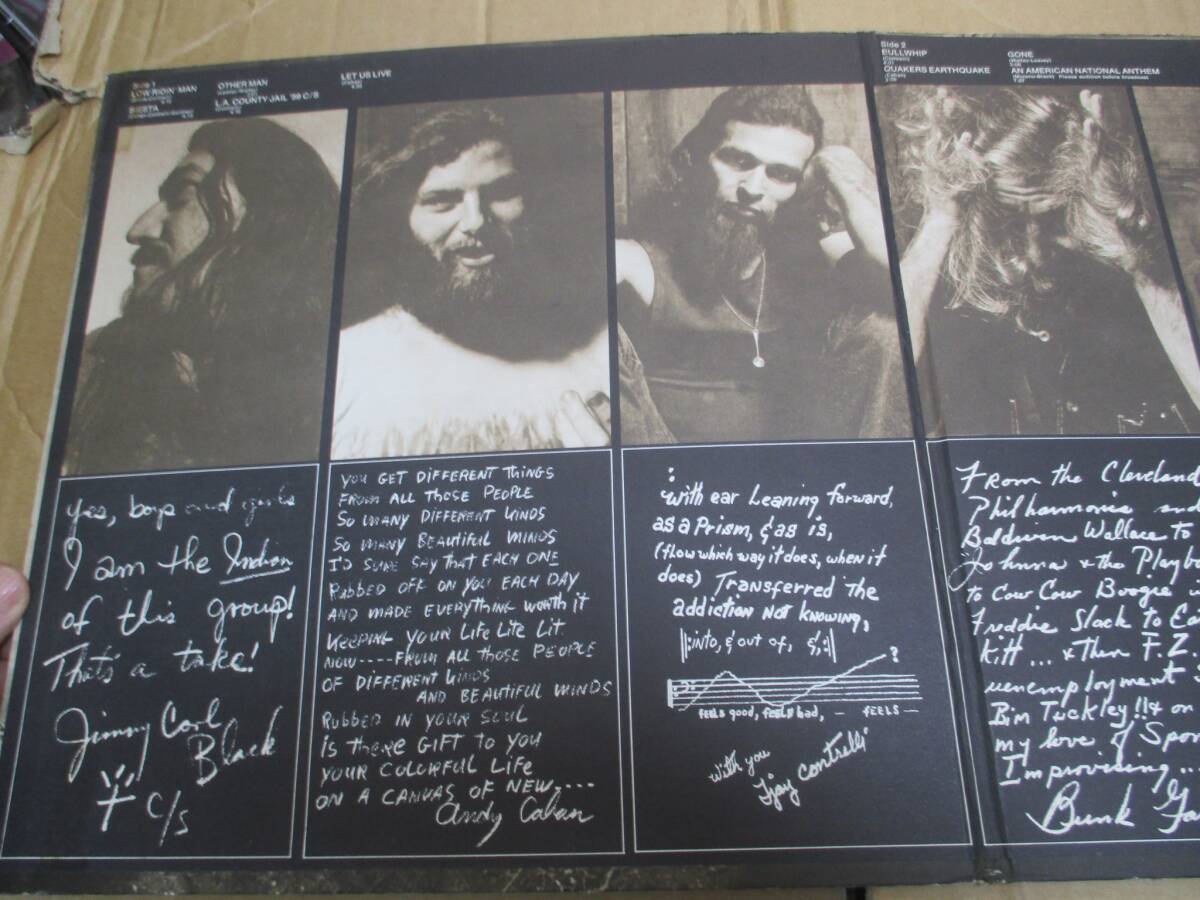 Side 1
LOWRIDIN' MAN
SIESTA
OTHER MAN
L.A. COUNTY JAIL '59 C/S
LET US LIVE
Side 2
BULLWHIP
QUAKERS EARTHQUAKE
GONE
AN AMERICAN NATIONAL ANTHEM Please audition before broadcast
Yes, boys and girls
I am the Indian
of this group!
That's a take!
Jimmy Carl
Black
C/S
YOU GET DIFFERENT THINGS
FROM ALL THOSE PEOPLE
SO MANY DIFFERENT KINDS
SO MANY BEAUTIFUL MINDS
I'D SURE SAY THAT EACH ONE
RUBBED OFF ON YOU EACH DAY
AND MADE EVERYTHING WORTH IT
KEEPING YOUR LIFE LITE LIT.
NOW----FROM ALL THOSE PEOPLE
OF DIFFERENT KINDS
AND BEAUTIFUL MINDS
RUBBED IN YOUR SOUL
IS THERE GIFT TO YOU
YOUR COLORFUL LIFE
ON A CANVAS OF NEW----
Andy Cahan
: with ear Leaning forward,
as a Prism, & as is,
(flow which way it does, when it
does) Transferred the
addiction NOT KNOWING,
||:into, & out of, &,:||
?
FEELS good, FEELS bad, — FEELS —
with you
Tjay Contrelli
From the Cleveland
Philharmonic
Baldwin Wallace to
Johnna & the Playbo
to Cow Cow Boogie w
Freddie Slack to Ea
Kitt ... & Then F.Z.
uenemployment
Bim Tuckley !! & on
my love of Spon
Improvising ...
Bunk Ga